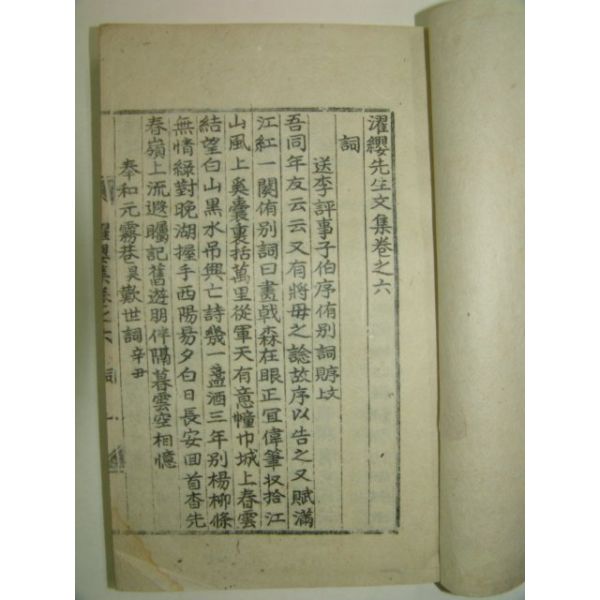 濯纓先生文集卷之六
詞
送李評事子伯序侑別詞
吾同年友云云又有將毋之諗故序以告之又賦滿
江紅一闋侑別詞曰畫戟森在眼正宜偉筆収拾江
山風上奚囊裏括萬里從軍天有意幢巾城上春雲
結望白山黑水吊興亡詩幾一盞酒三年別楊柳條
無情綠對晚湖握手西陽易夕白日長安回首杳先
春嶺上流遐矚記舊遊朋伴隔暮雲空相憶
奉和元霧巷昊歎世詞辛丑
濯纓集卷之六 詞 一